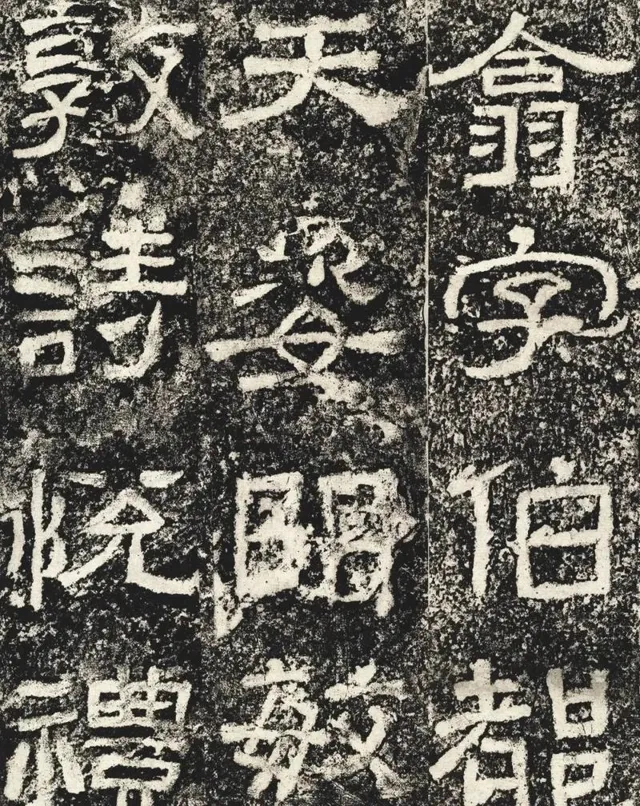 翕字伯都
天姿明敏
敦詩悅禮